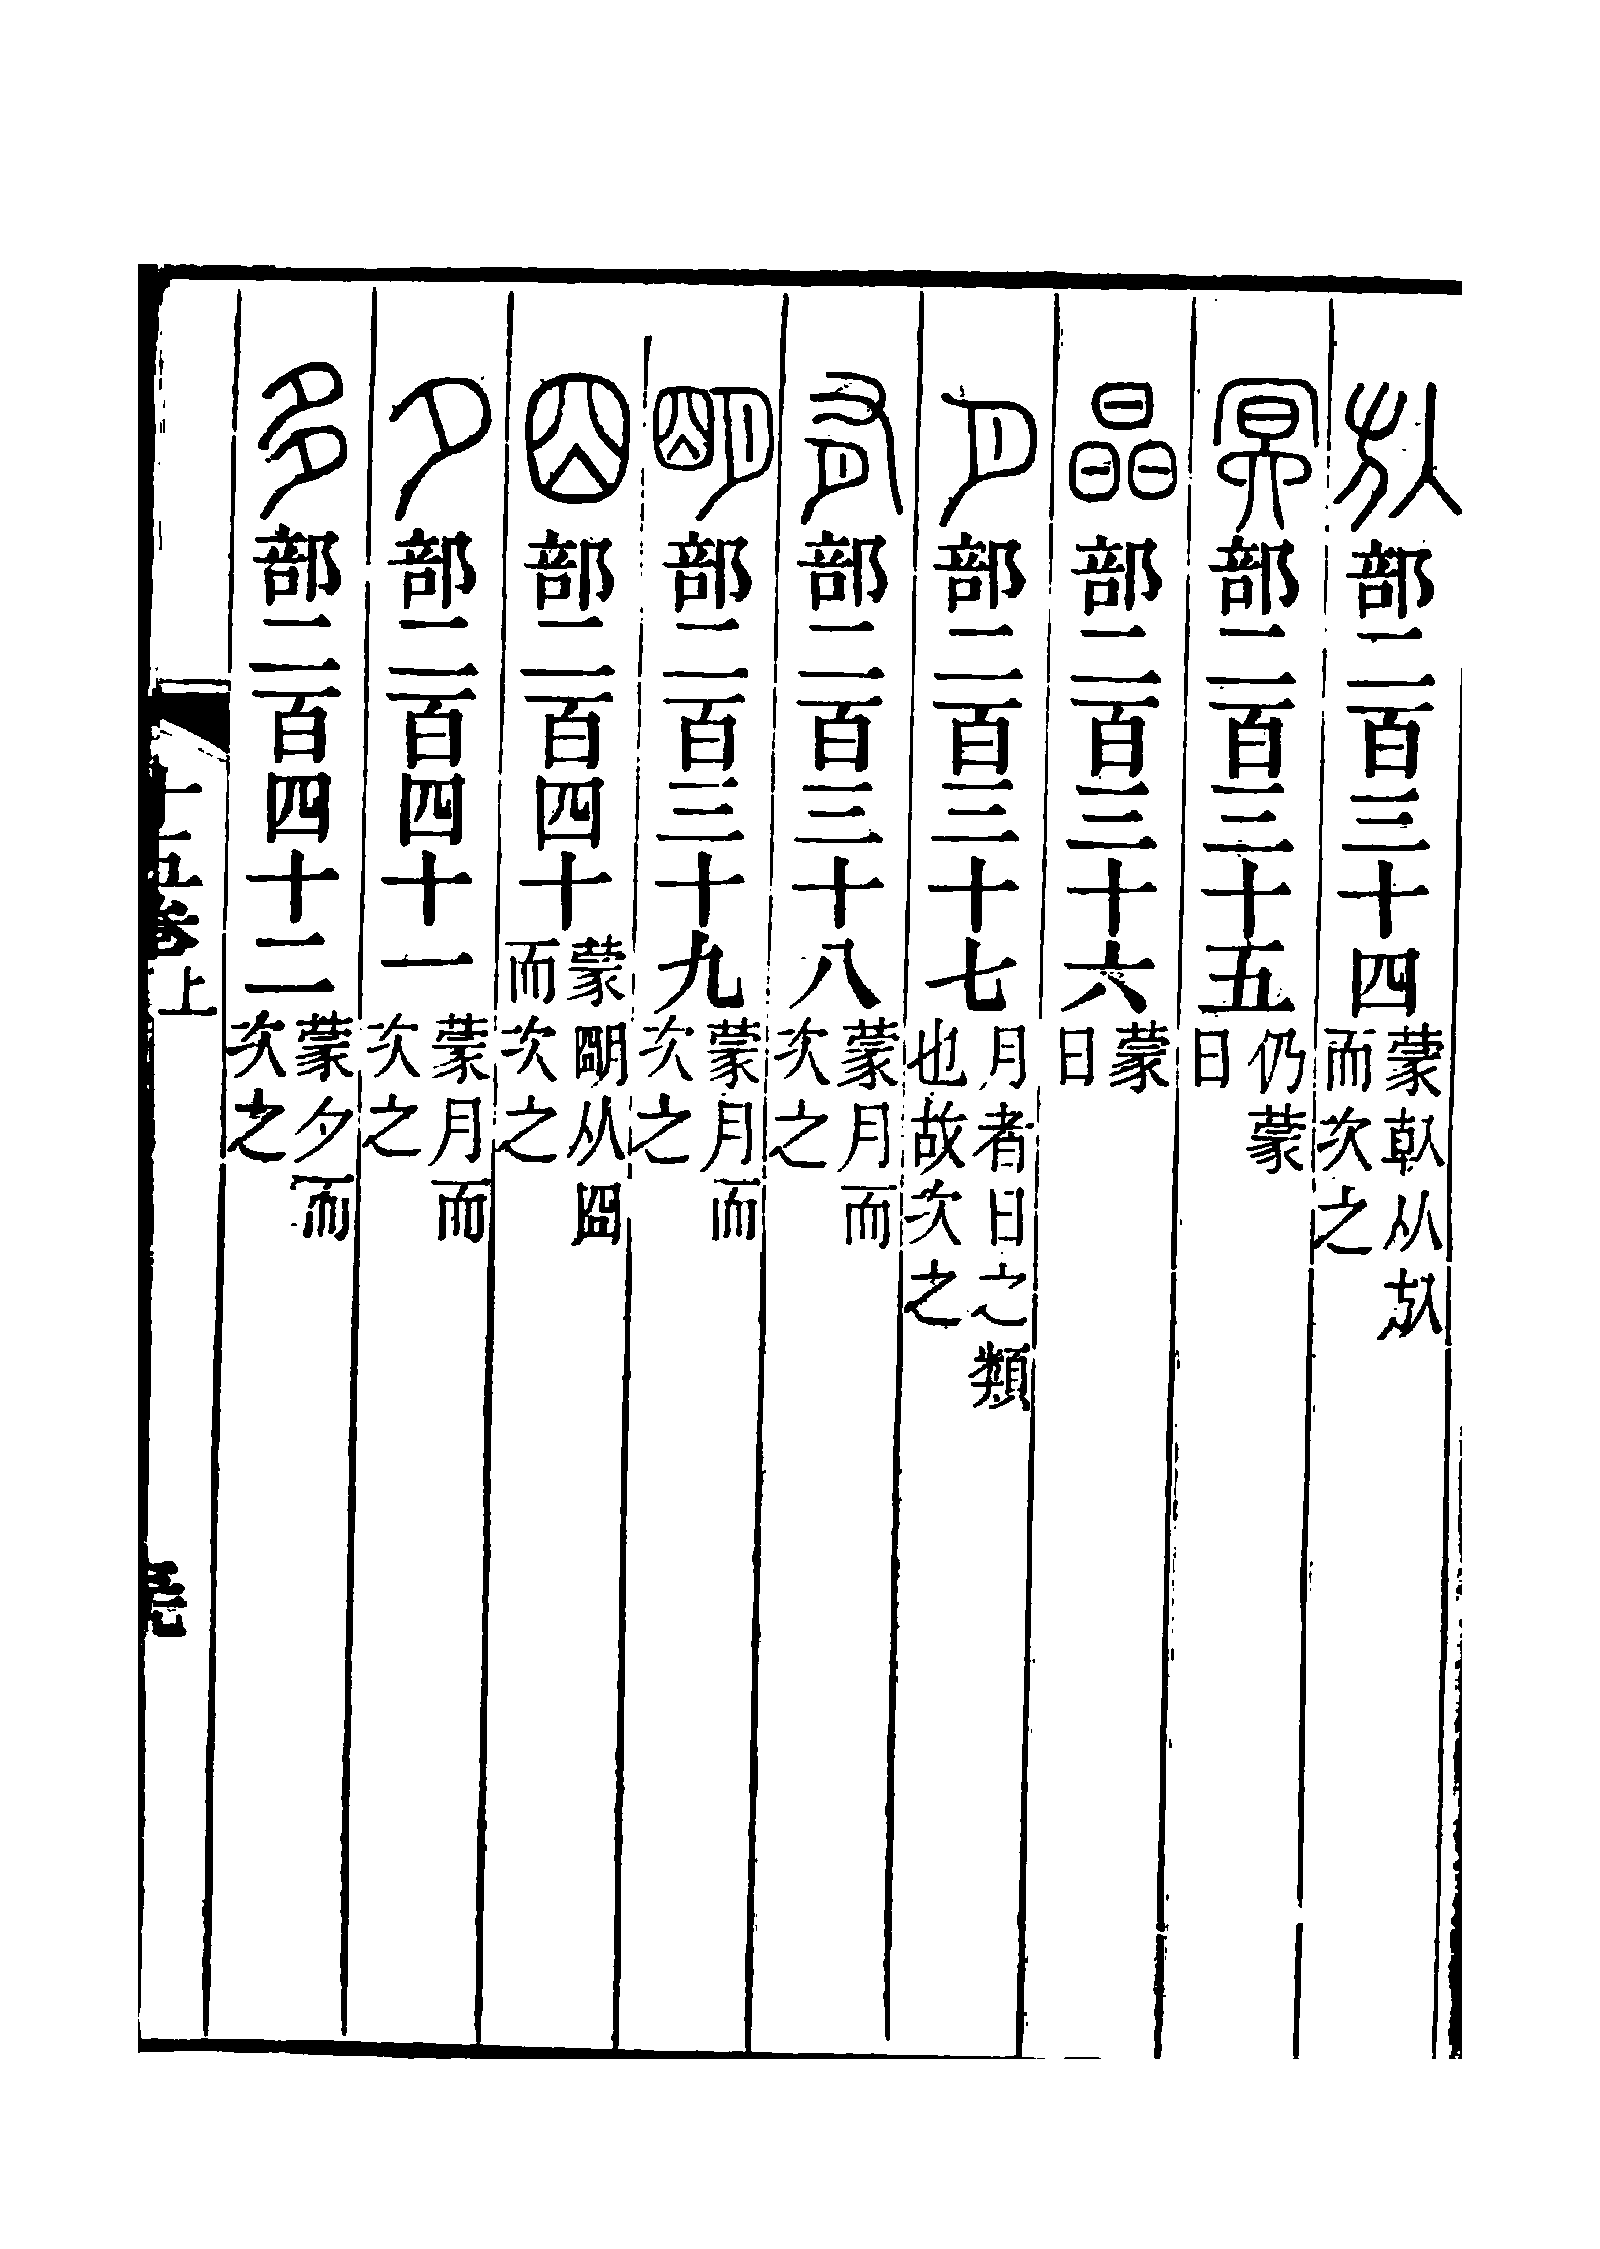 㫃部二百三十四蒙倝从㫃而次之
冥部二百三十五仍蒙日
晶部二百三十六蒙日
月部二百三十七月者日之類也故次之
有部二百三十八蒙月而次之
朙部二百三十九蒙月而次之
囧部二百四十蒙朙从囧而次之
夕部二百四十一蒙月而次之
多部二百四十二蒙夕而次之
十五卷上